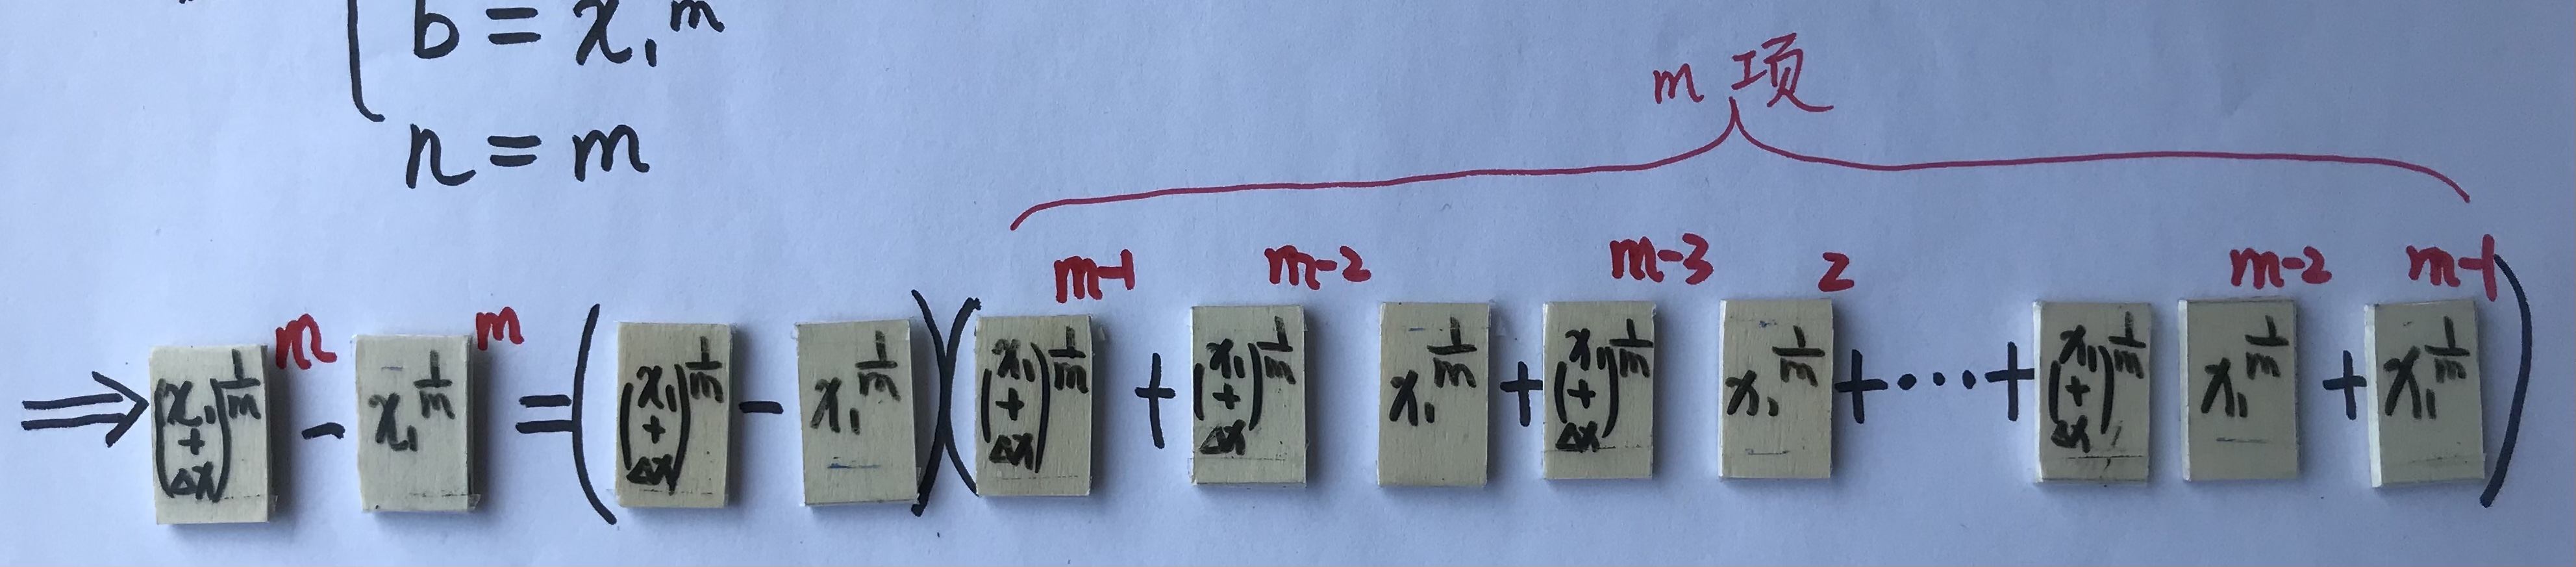 b = x₁ᵐ
n = m
m 项
⇒ (x₁+Δx)^(1/m) ^m − x₁^(1/m) ^m = ( (x₁+Δx)^(1/m) − x₁^(1/m) ) ( (x₁+Δx)^(1/m) ^(m-1) + (x₁+Δx)^(1/m) ^(m-2) x₁^(1/m) + (x₁+Δx)^(1/m) ^(m-3) x₁^(1/m) ^2 + ··· + (x₁+Δx)^(1/m) x₁^(1/m) ^(m-2) + x₁^(1/m) ^(m-1) )